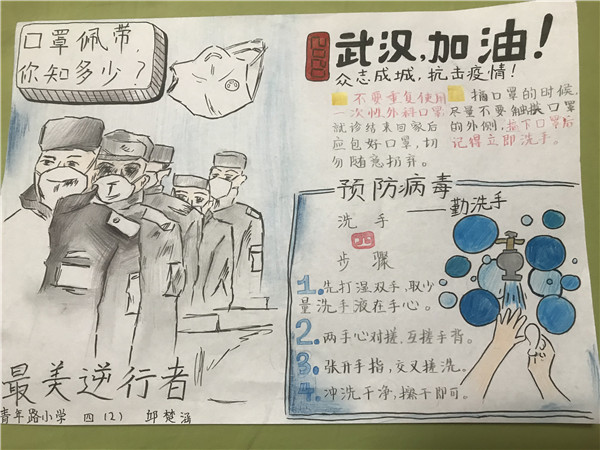 口罩佩带,
你知多少?
2020
武汉,加油!
众志成城,抗击疫情!
不要重复使用
一次性外科口罩
就诊结束回家后
应包好口罩,切
勿随意扔弃。
摘口罩的时候,
尽量不要触摸口罩
的外侧,摘下口罩后
记得立即洗手。
预防病毒
——勤洗手
洗手
步骤
1.先打湿双手,取少
量洗手液在手心。
2.两手心对搓,互搓手背。
3.张开手指,交叉搓洗。
4.冲洗干净,擦干即可。
最美逆行者
青年路小学 四(2) 邱楚涵